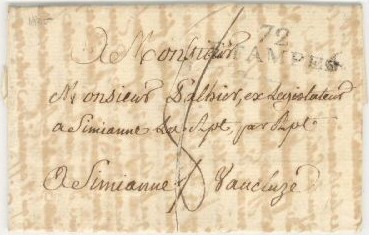 72
ETAMPES
A Monsieur
Monsieur Dalhier, ex Legislateur
a Simianne La Apt, par Apt
A Simianne Vaucluze